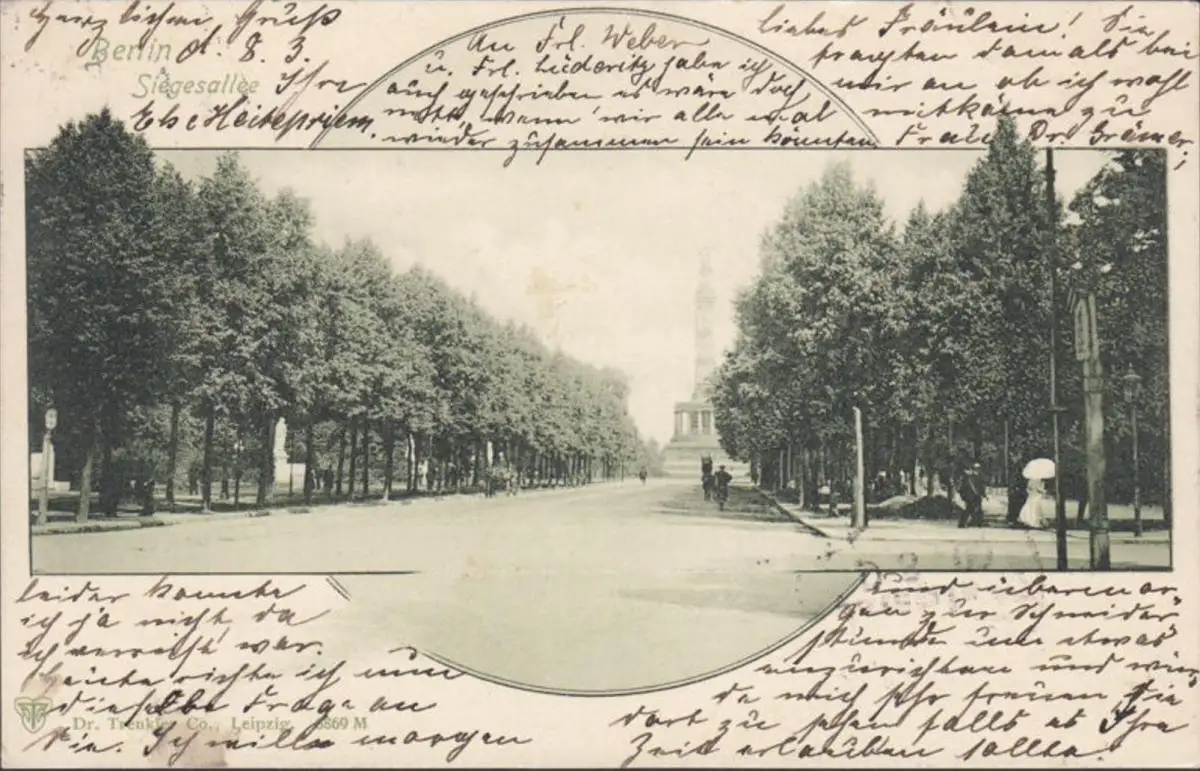 Herzlichen Gruß
Berlin
d. 8. 3.
Siegesallee
Ihre
Else
An Frl. Weber
u. Frl. Lüderitz habe ich
auch geschrieben es wäre doch
nett, wenn wir alle mal
wieder zusammen sein könnten
liebes Fräulein! Sie
fragten damals bei
mir an, ob ich wohl
mitkäme zu
Frau Dr.
leider konnte
ich ja nicht da
ich verreist war.
Heute richte ich nun
dieselbe Frage an
Dr. Trenkler Co., Leipzig. 8869 M
Sie. Ich will morgen
und übermor-
gen zur Schneider
stunde um etwas
einzurichten und
da mich sehr freuen Sie
dort zu sehen falls es Ihre
Zeit erlauben sollte.